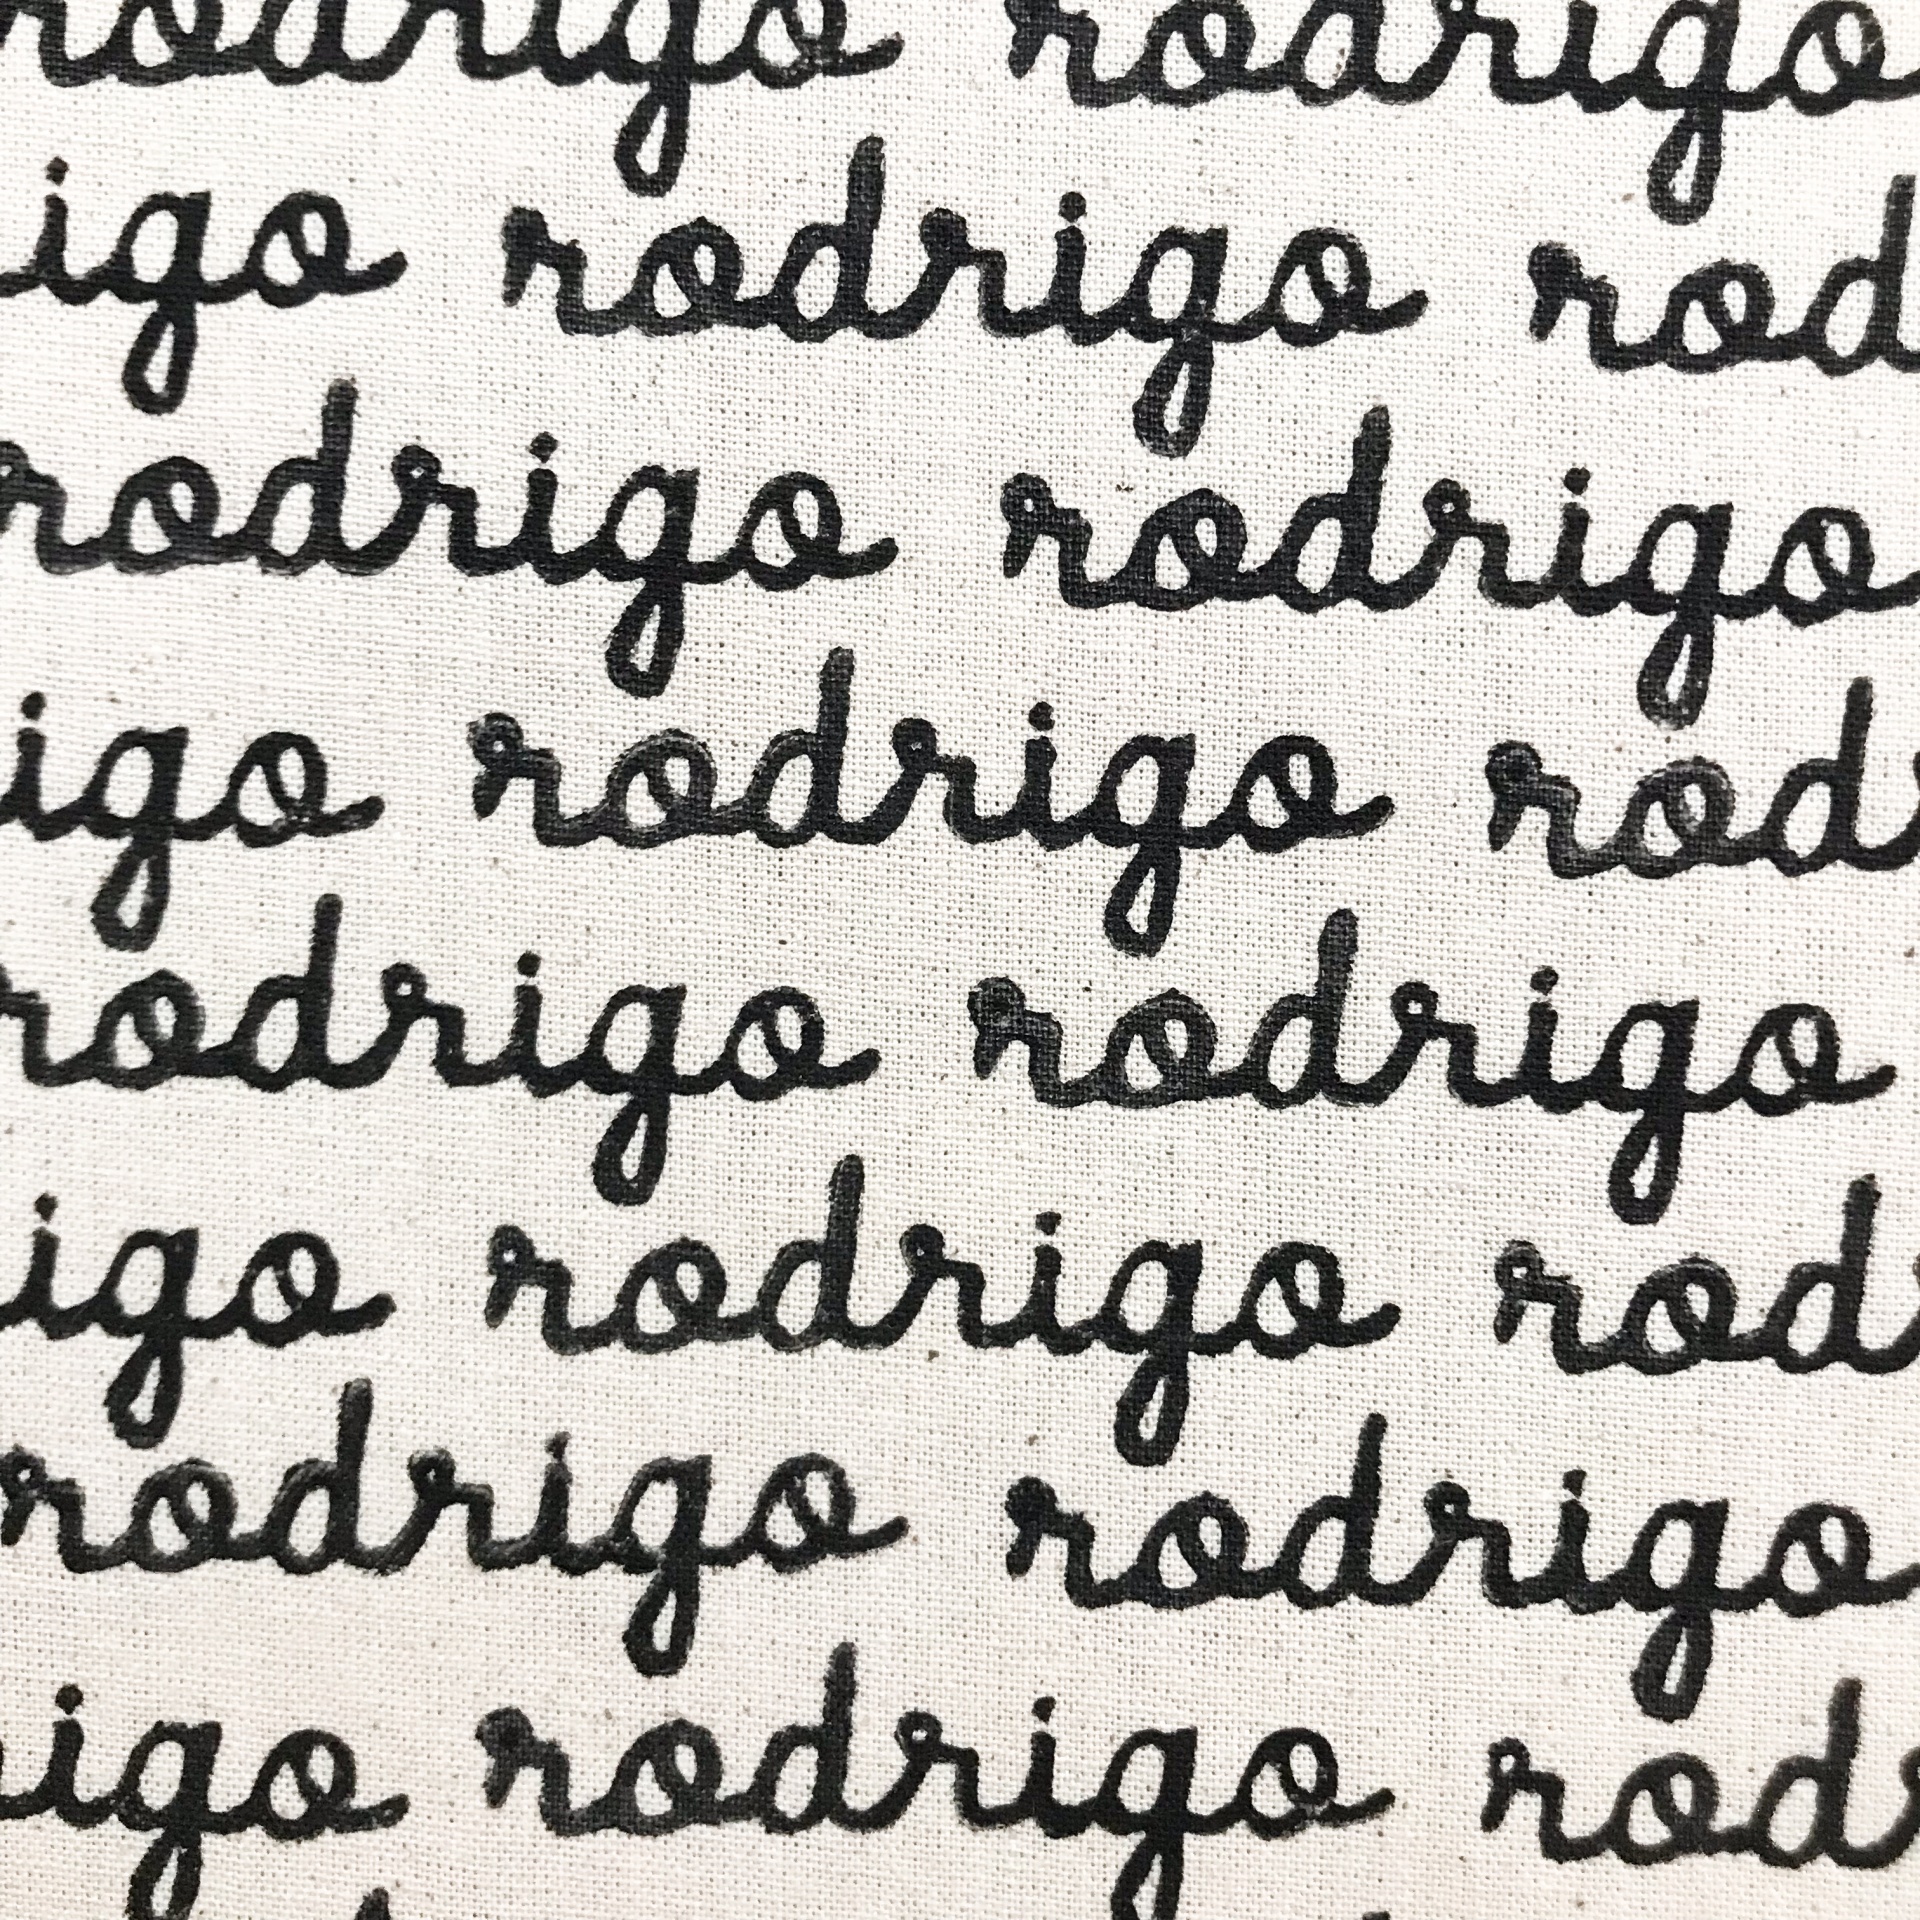 rodrigo rodrigo
igo rodrigo rod
rodrigo rodrigo
igo rodrigo rod
rodrigo rodrigo
igo rodrigo rod
rodrigo rodrigo
igo rodrigo rod